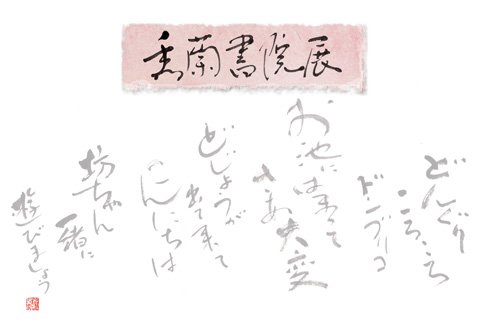 香蘭書院展
どんぐり
ころころ
ドンブリコ
お池にはまって
さあ大変
どじょうが
出て来て
こんにちは
坊ちゃん
一緒に
遊びましょう